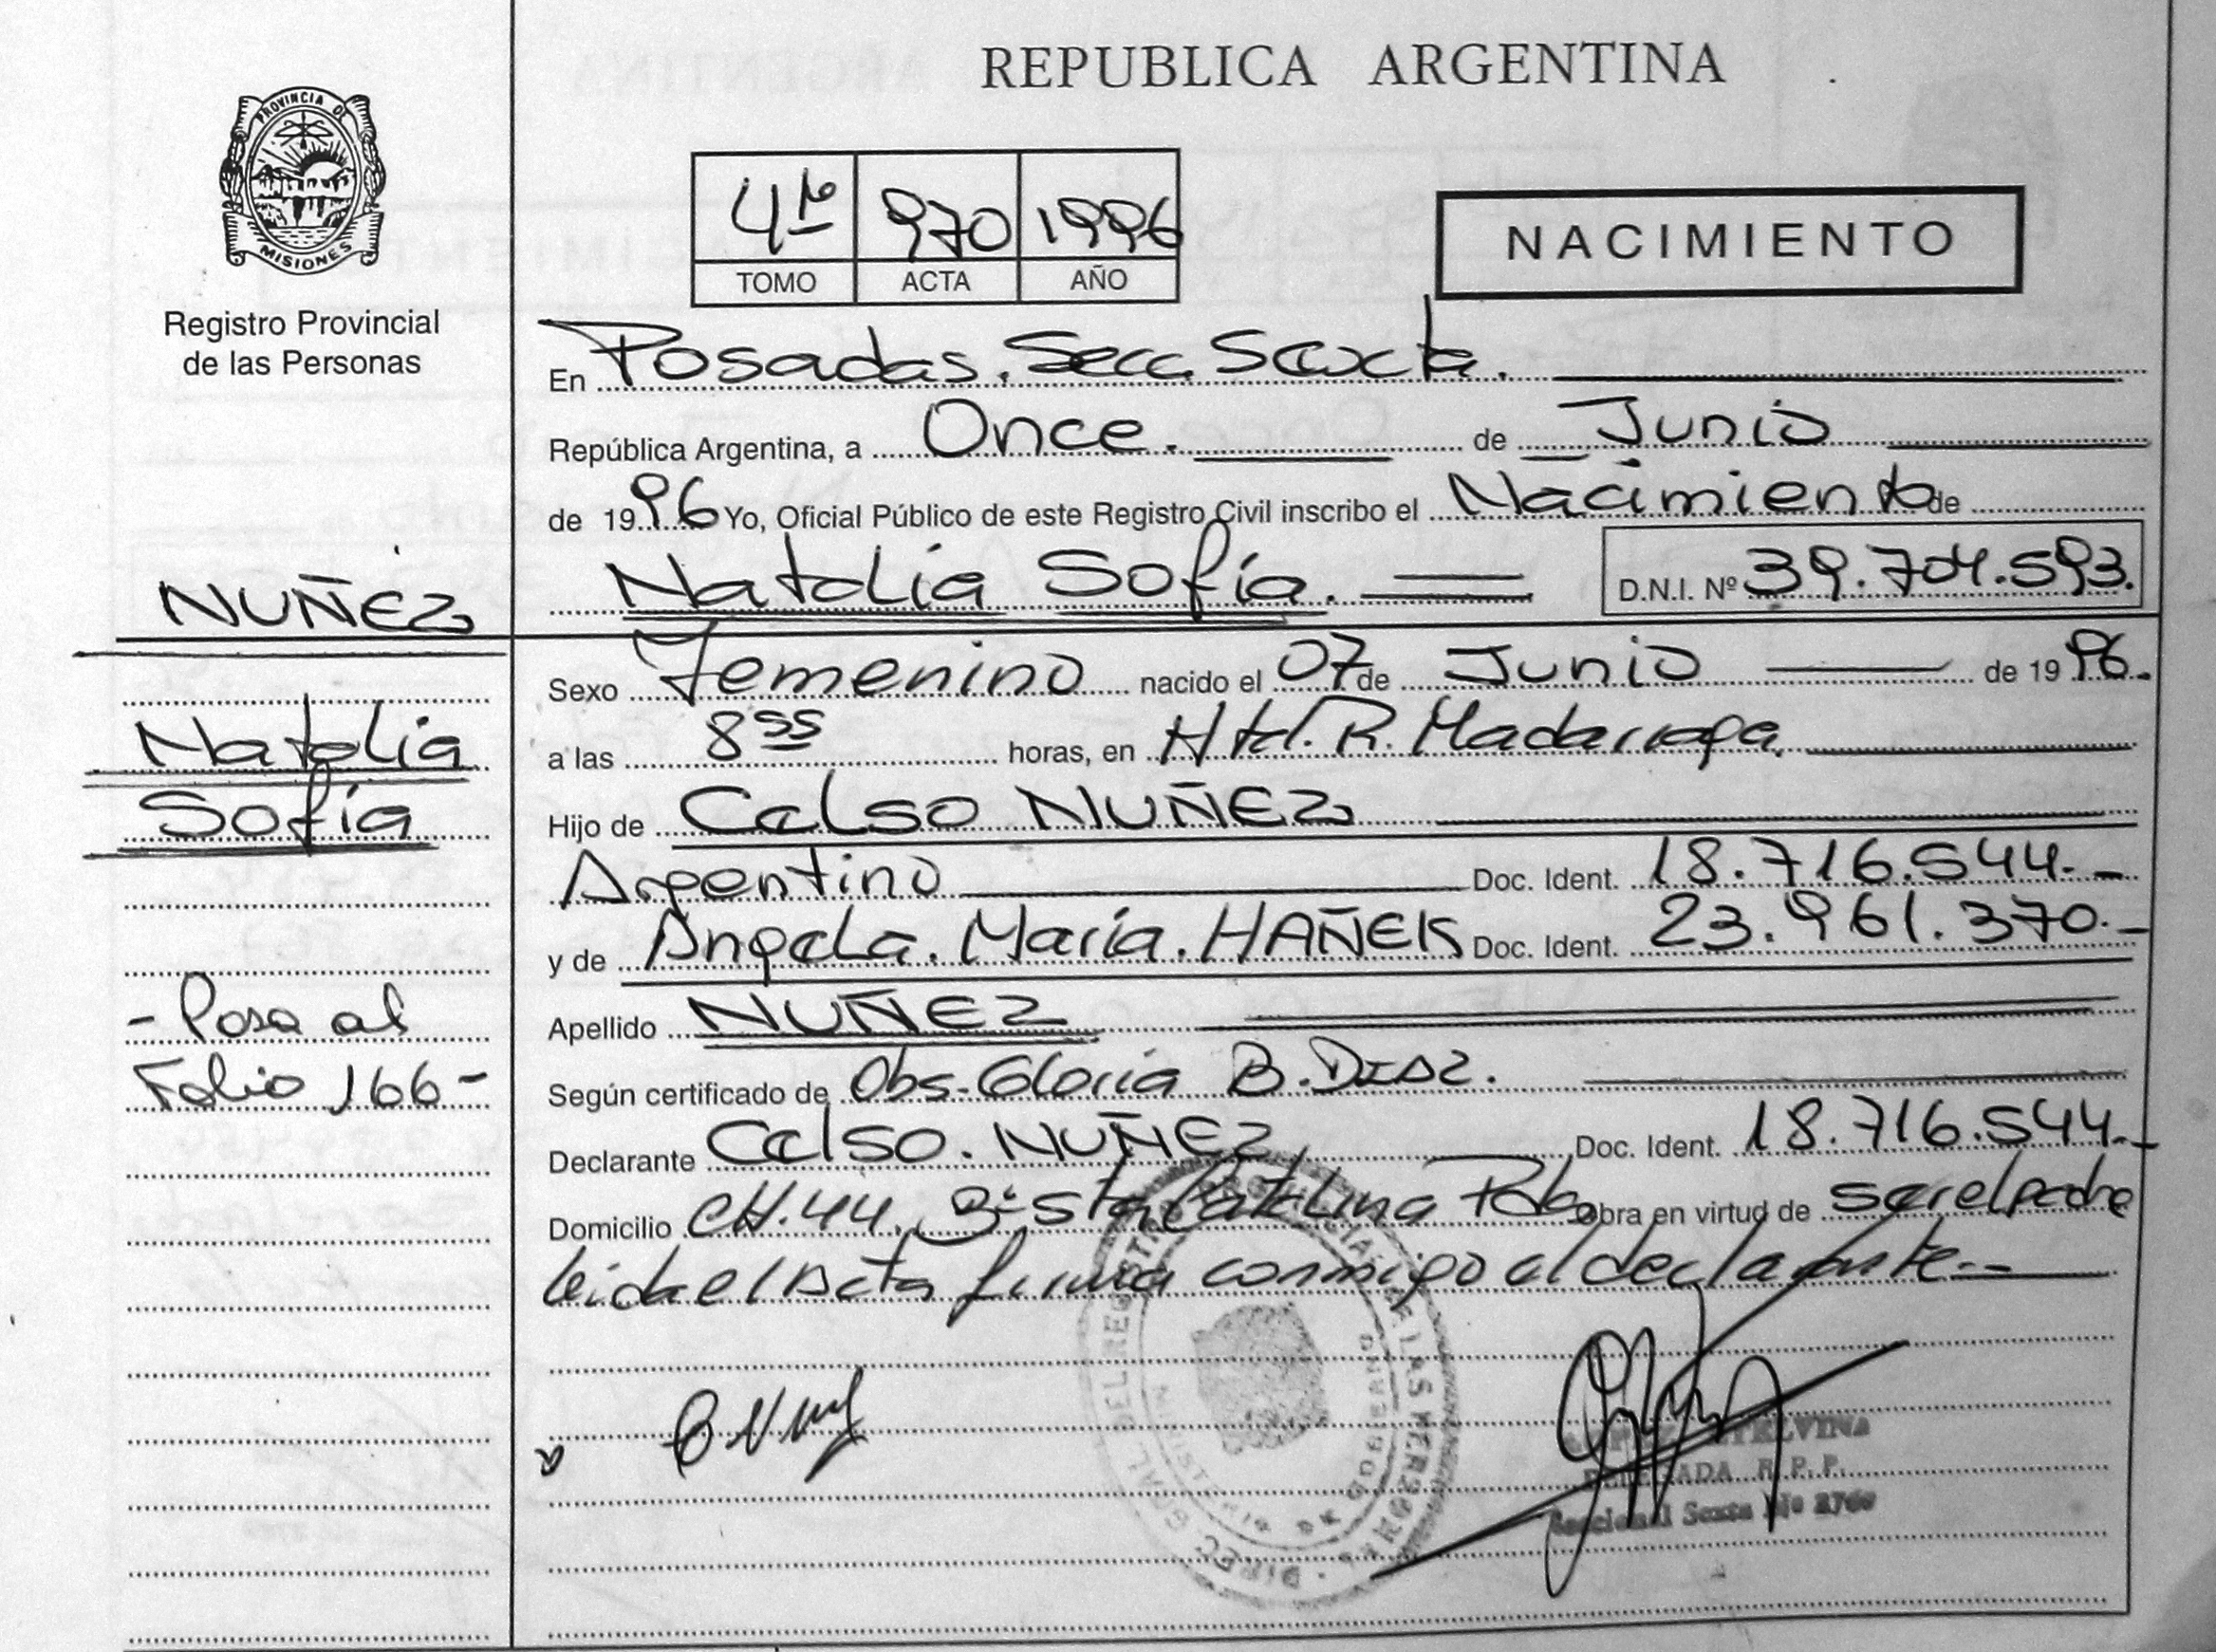 REPUBLICA ARGENTINA
PROVINCIA DE
MISIONES
Registro Provincial
de las Personas
4to 970 1996
TOMO ACTA AÑO
NACIMIENTO
En Posadas. Secc. Sexta.
República Argentina, a Once. de Junio
de 1996 Yo, Oficial Público de este Registro Civil inscribo el Nacimiento de
Natalia Sofía. D.N.I. Nº 39.704.593.
NUÑEZ
Natalia
Sofía
- Pasa al
Folio 166 -
Sexo Femenino nacido el 07 de Junio de 1996.
a las 8 55 horas, en Htal. R. Madariaga.
Hijo de Celso NUÑEZ
Argentino Doc. Ident. 18.716.544.-
y de Angela. María. HAÑEK Doc. Ident. 23.961.370.-
Apellido NUÑEZ
Según certificado de Obs. Gloria B. DIAZ.
Declarante Celso. NUÑEZ Doc. Ident. 18.716.544.-
Domicilio CH.44. Bº Sta Catalina Obra en virtud de ser el padre
leida el Acta firma conmigo el declarante.-
DELEGADA R. P. P.
Seccional Sexta Nº